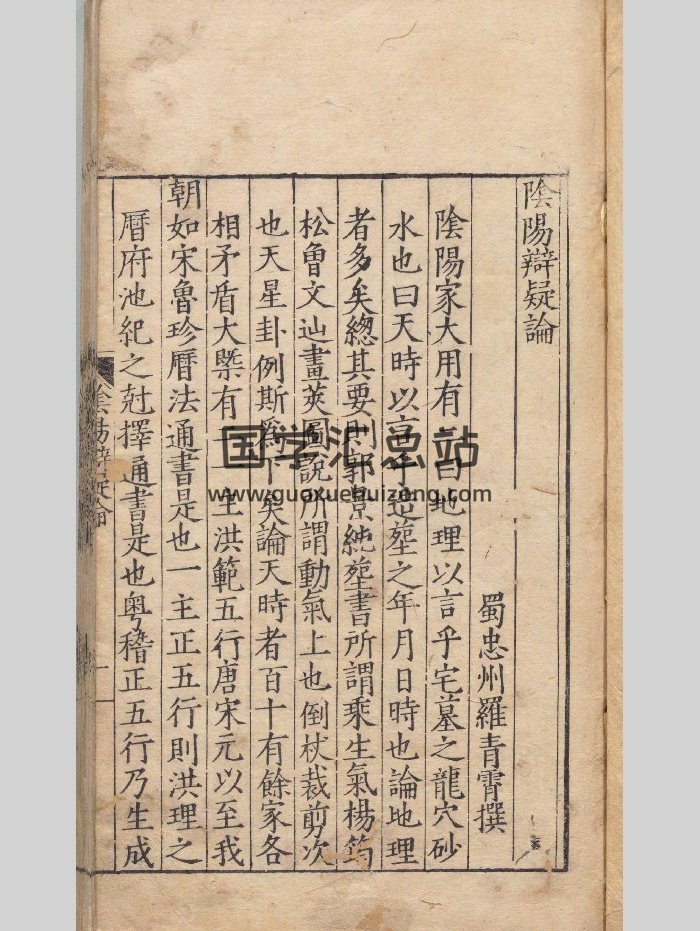 陰陽辯疑論
蜀忠州羅青霄撰
陰陽家大用有二曰地理以言乎宅墓之龍穴砂
水也曰天時以言乎造塟之年月日時也論地理
者多矣緫其要則郭景純塟書所謂乗生氣楊筠
松曾文辿畫莢圖說所謂動氣上也倒杖裁剪次
也天星卦例斯爲下矣論天時者百十有餘家各
相矛盾大槩有二一主洪範五行唐宋元以至我
朝如宋魯珍暦法通書是也一主正五行則洪理之
暦府池紀之尅擇通書是也粤稽正五行乃生成
陰陽辯疑論
一
国学汇总站
www.guoxuehuizong.com